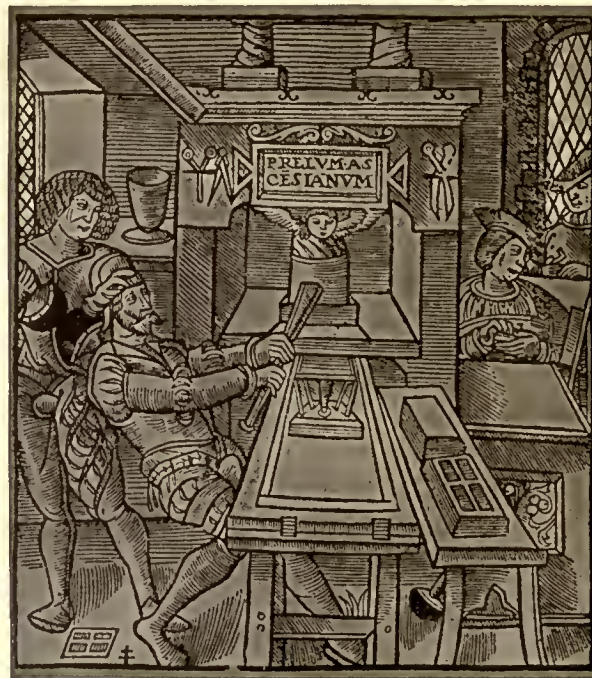 PRELVM·AS
CESIANVM